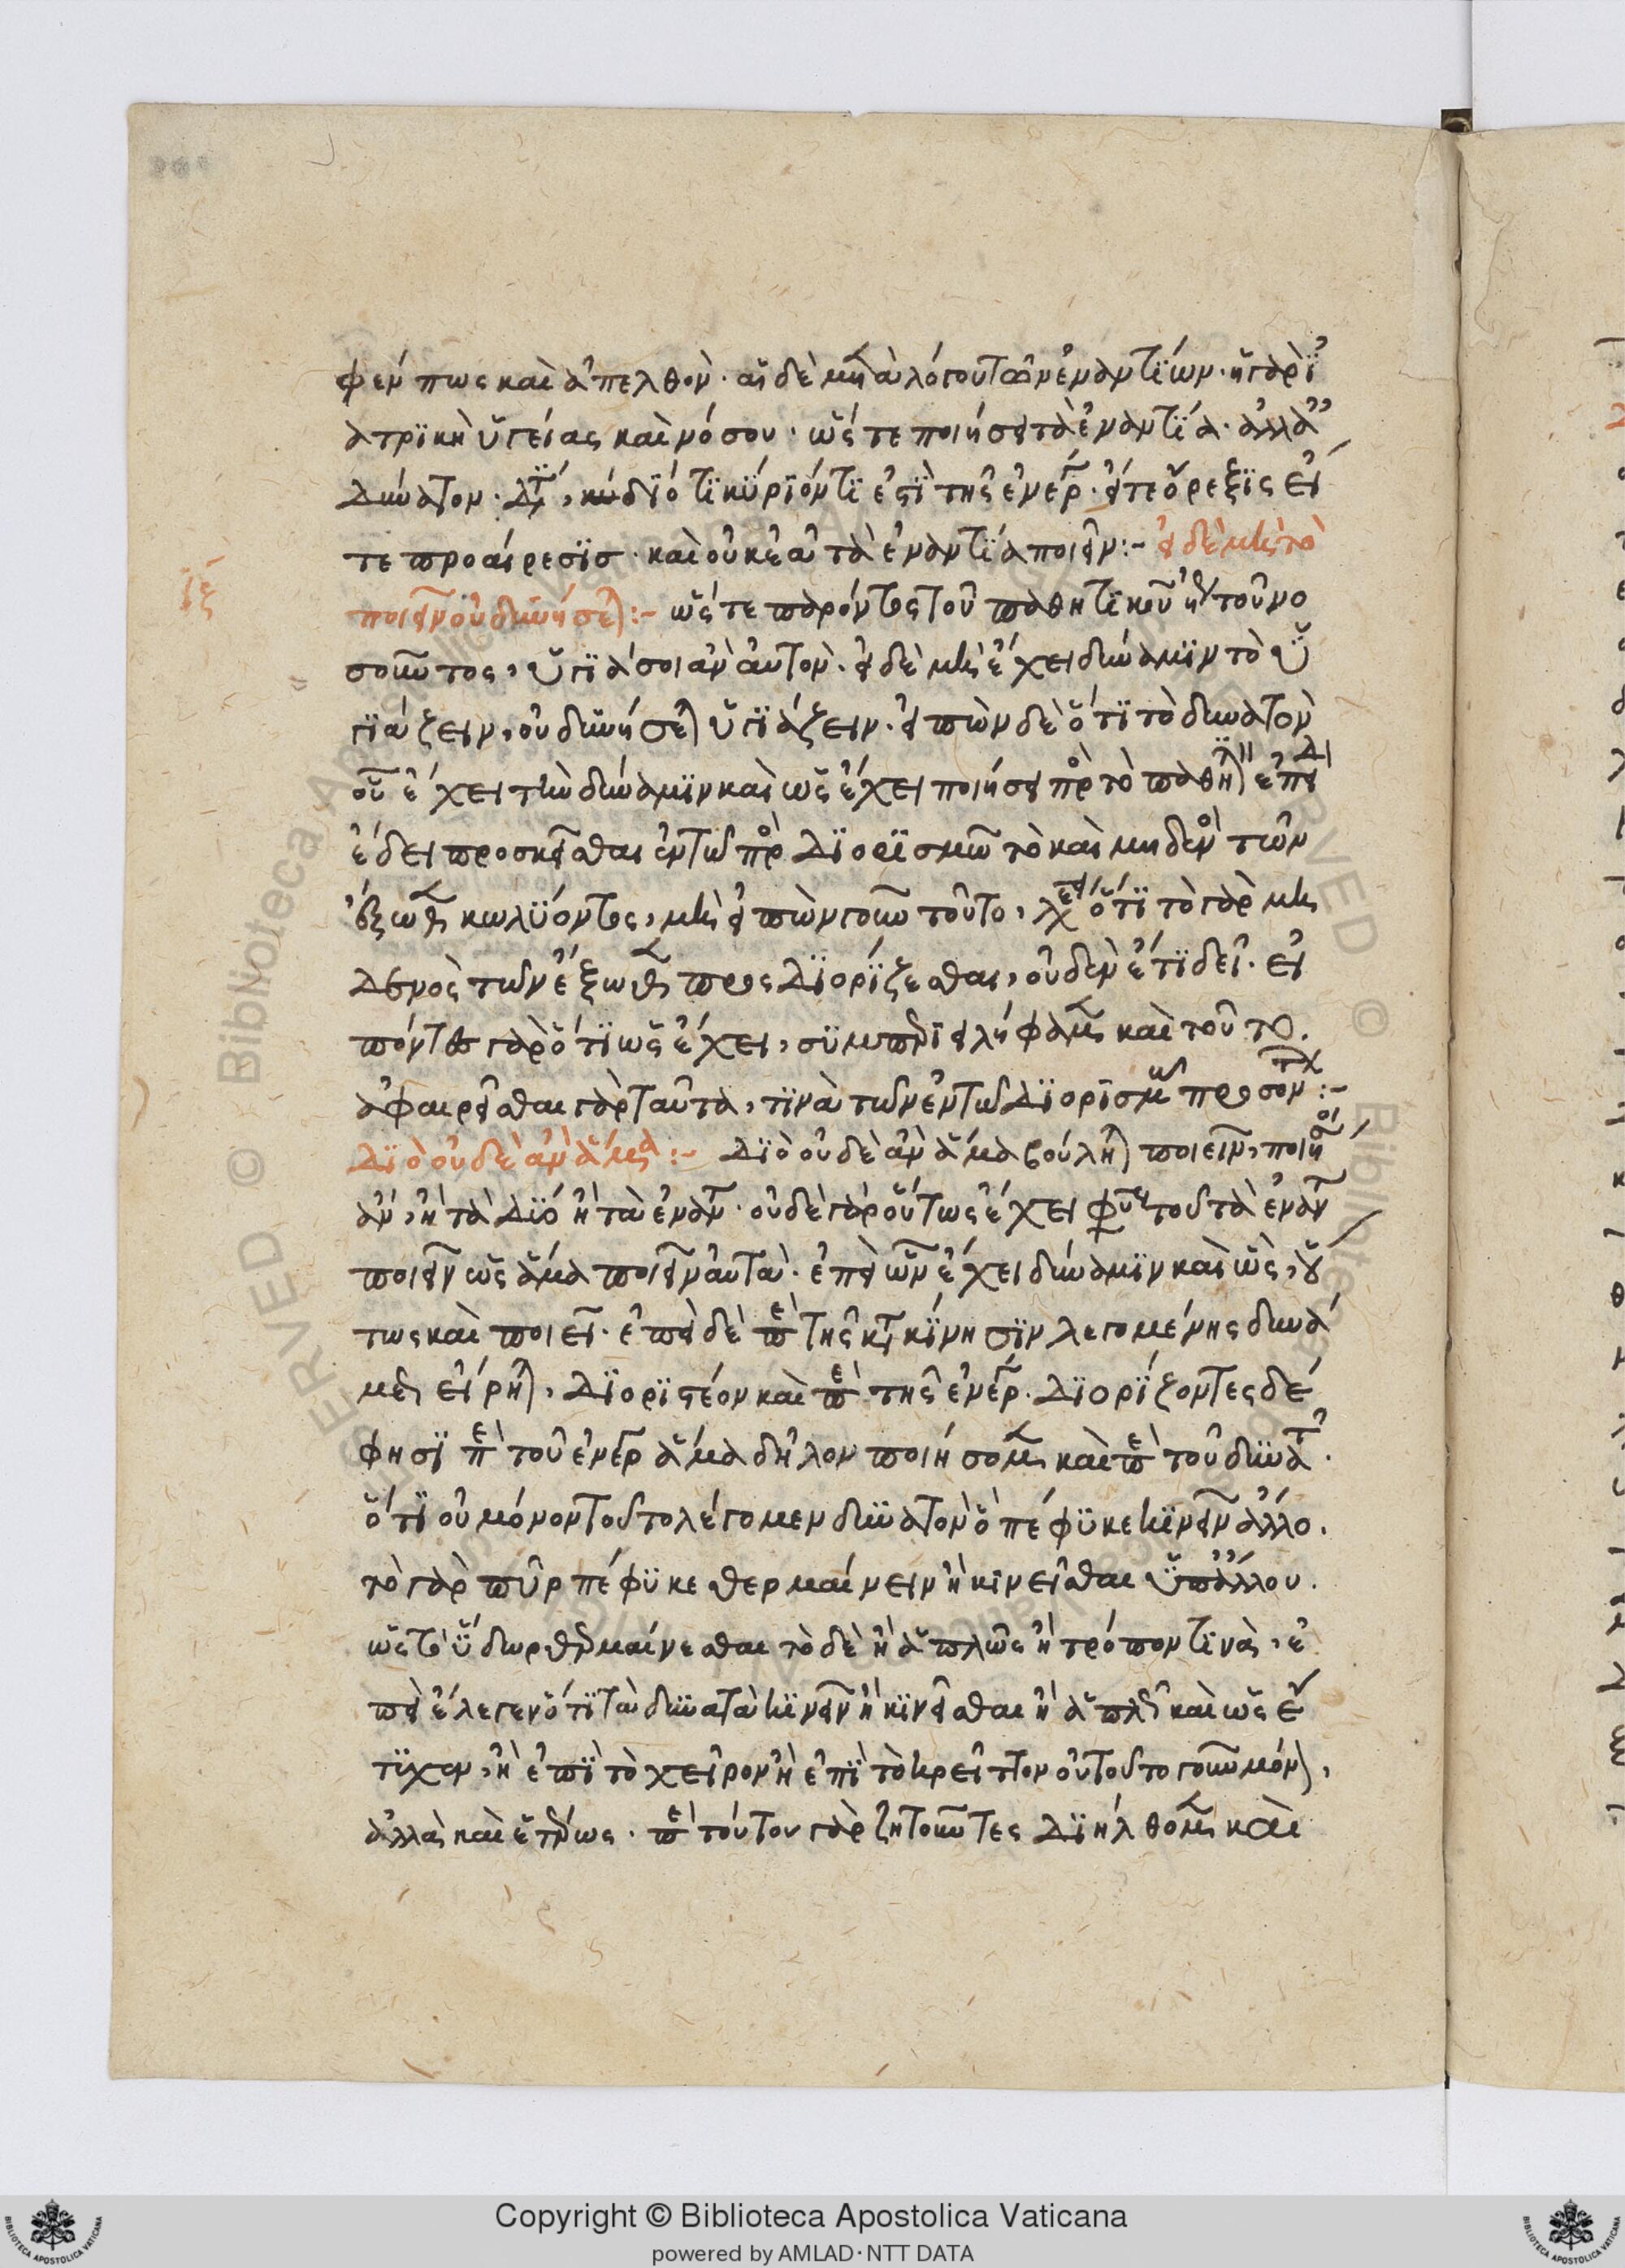 φέν πως καὶ ἀπελθὸν· αἱ δὲ μετὰ λόγου τῶν ἐναντίων· ἡ γὰρ ἰ
ατρϊκὴ ὑγείας καὶ νόσου· ὥστε ποιήσει τὰ ἐναντία· ἀλλ' ἀ
δύνατον· διότι κύριόν τι ἐστὶ τῆς ἐνερ· εἴτε ὄρεξϊς εἴ
τε προαίρεσϊς· καὶ οὐκ αὐτὰ ἐναντία ποιεῖν:- εἰ δὲ μὴ τὸ
ιξ
ποιεῖν οὐ δυνήσεται:- ὥστε παρόντος τοῦ παθητικοῦ ἤγουν τοῦ νο
σοῦντος, ὑγιάσοι ἂν αὐτὸν· εἰ δὲ μὴ ἔχει δύναμϊν τὸ ὑ
γϊάζειν, οὐ δυνήσεται ὑγϊάζειν· εἰπὼν δὲ ὅτϊ τὸ δυνατὸν
οὗ ἔχει τὴν δύναμϊν καὶ ὡς ἔχει ποιήσει πρὸς τὸ παθη ἐπεὶ
ἔδει προσκεῖσθαι ἐν τῷ πρὸς Διορϊσμῶ τὸ καὶ μηδενὸς τῶν
ἔξωθεν κωλύοντος, μὴ εἰπὼν γοῦν τοῦτο, λέγει ὅτι τὸ γὰρ μη
δενὸς τῶν ἔξωθεν προς Διορίζεσθαι, οὐδὲν ἔτϊ δεῖ· εἰ
πόντες γὰρ ὅτϊ ὡς ἔχει, συμπεριειλήφαμεν καὶ τοῦτο.
ἀφαιρεῖσθαι γὰρ ταῦτα, τϊνὰ τῶν ἐν τῷ Διορϊσμῷ προσόντων:-
Διὸ οὐδὲ ἂν ἅμα:- Διὸ οὐδὲ ἂν ἅμα βούληται ποιεῖν, ποιή
ἄν, ἢ τὰ δύο ἢ τὰ ἐναντ· οὐδὲ γὰρ οὕτως ἔχει φύσεως τοῦ τὰ ἐναντ
ποιεῖν ὡς ἅμα ποιεῖν αὐτὰ· ἐπεὶ ὧν ἔχει δύναμϊν καὶ ὡς, οὕ
τως καὶ ποιεῖ· ἐπεὶ δὲ περὶ τῆς κατὰ κϊνησϊν λεγομένης δυνά
μεως εἴρηται, Διορϊστέον καὶ περὶ τῆς ἐνερ· Διορϊζοντες δέ
φησϊ περὶ τοῦ ἐνερ ἅμα δῆλον ποιήσομεν καὶ περὶ τοῦ δυνατ·
ὅτϊ οὐ μόνον τοῦτο λέγομεν δυνατὸν ὃ πέφϋκε κϊνεῖν ἄλλο.
τὸ γὰρ πῦρ πέφϋκε θερμαίνειν ἢ κϊνεῖσθαι ὑπ' ἄλλου.
ὡς τὸ ὕδωρ θερμαίνεσθαι τὸ δὲ ἢ ἁπλῶς ἢ τρόπον τϊνὰ, ἐ
πεὶ ἔλεγεν ὅτϊ τὰ δυνατὰ κϊνεῖν ἢ κϊνεῖσθαι ἢ ἁπλῶς καὶ ὡς ἔ
τϋχεν, ἢ ἐπϊ τὸ χεῖρον ἢ ἐπϊ τὸ κρεῖττον οὐ τοῦτο γοῦν μόνον,
ἀλλὰ καὶ ἑτέρως· περὶ τούτου γὰρ ζητοῦντες Διήλθομεν καὶ
Copyright © Biblioteca Apostolica Vaticana
powered by AMLAD·NTT DATA